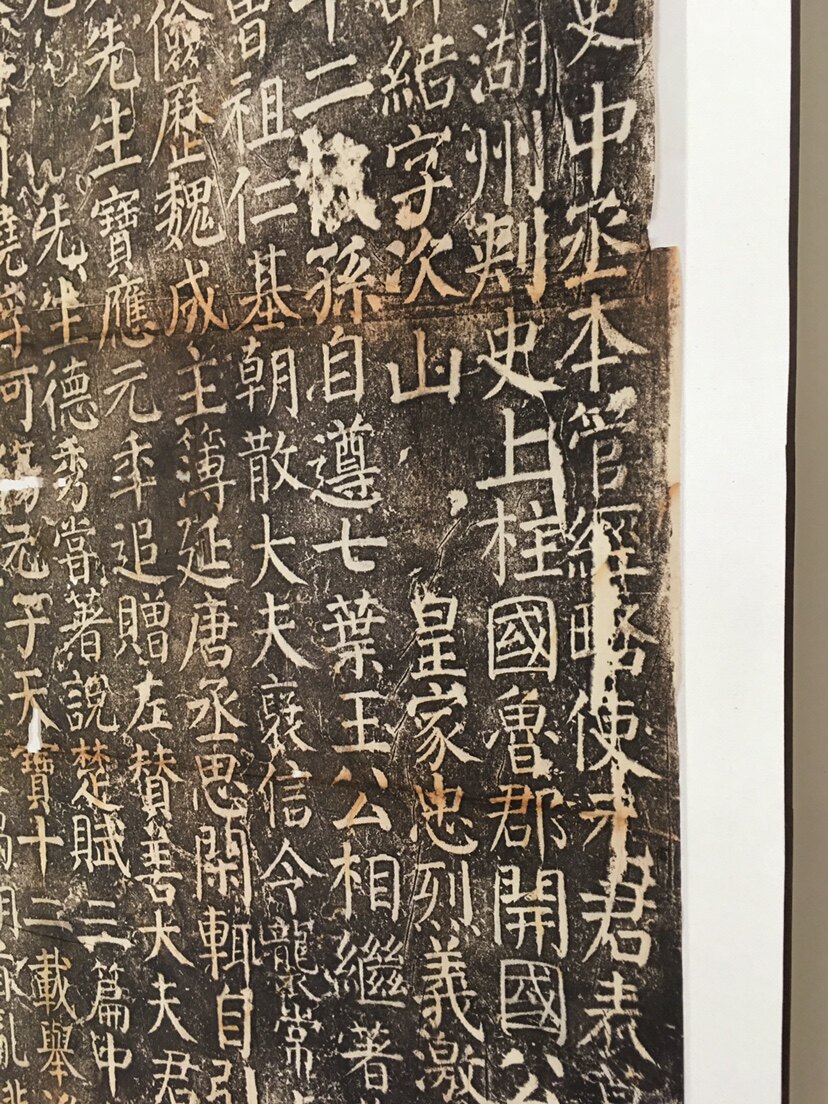 史中丞本管經略使元君表
湖州刾史上柱國魯郡開國公
結字次山皇家忠烈義激
十二孫自遵七葉王公相繼著
曾祖仁基朝散大夫襃信令襲常
儉歷魏成主簿延唐丞思閑輒自引
先生寶應元年追贈左贊善大夫君
先生德秀嘗著說楚賦三篇中
元子天寶十二載舉